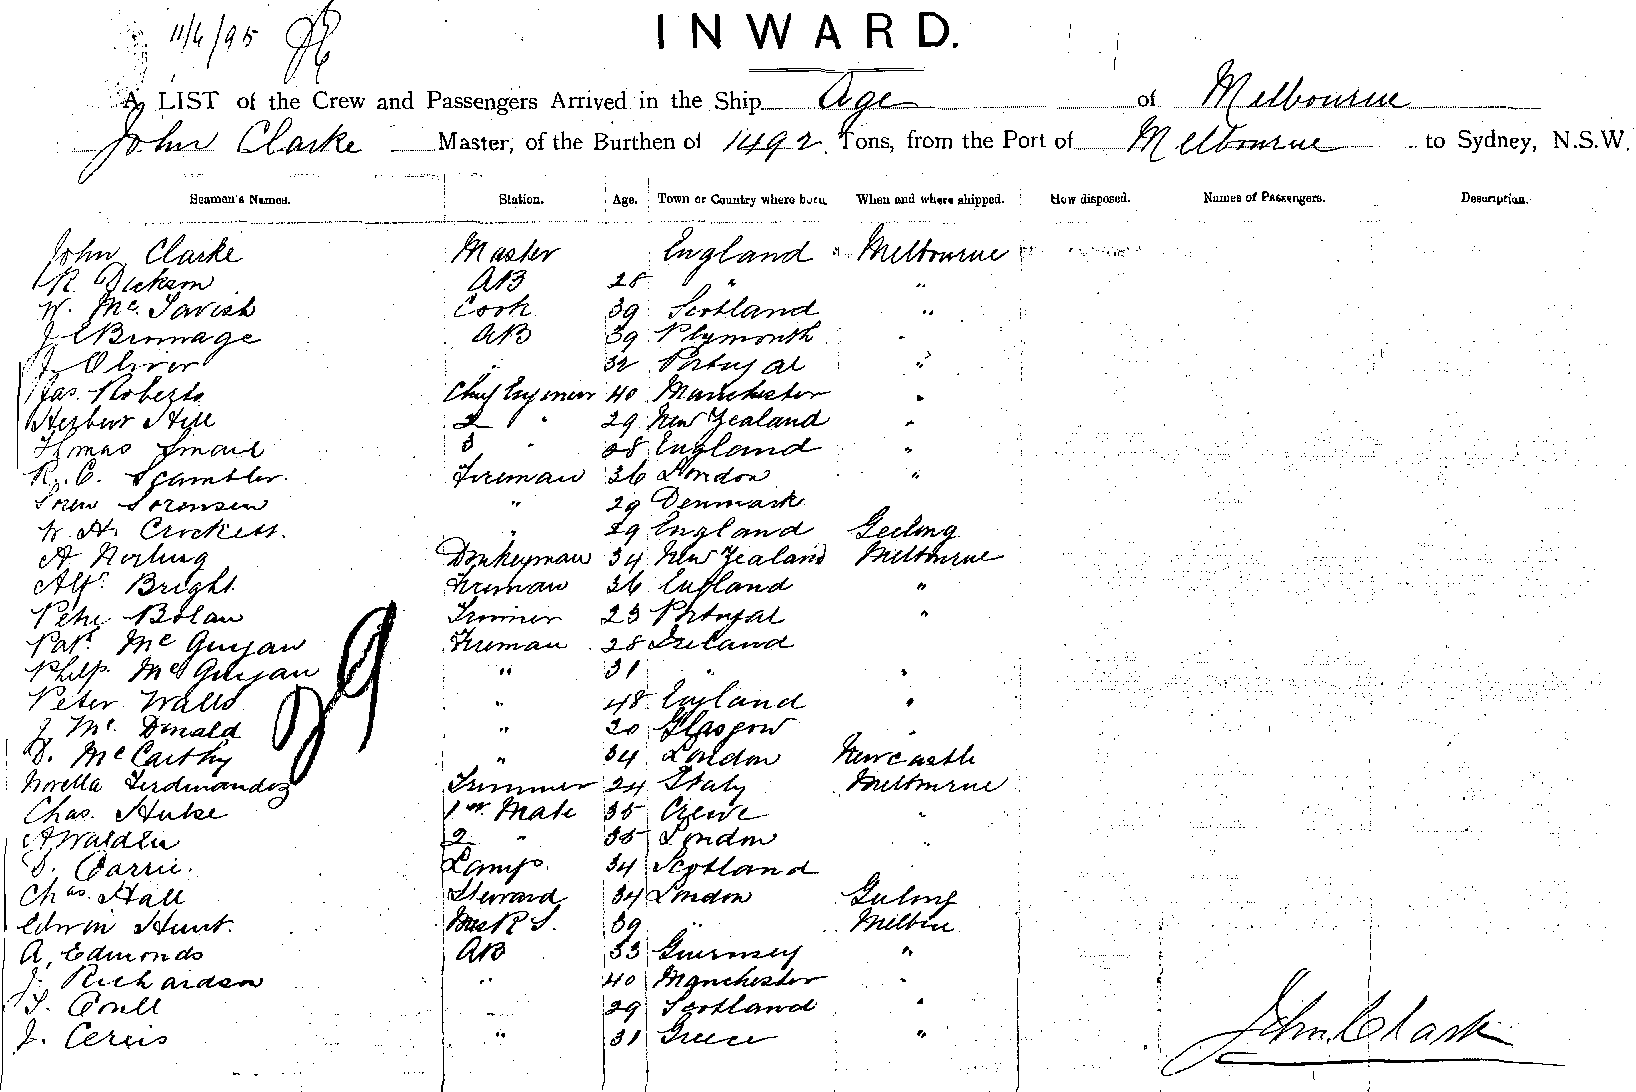 11/6/95
INWARD.
A LIST of the Crew and Passengers Arrived in the Ship Age of Melbourne
John Clarke Master, of the Burthen of 1492 Tons, from the Port of Melbourne to Sydney, N.S.W.
Seamen's Names. Station. Age. Town or Country where born. When and where shipped. How disposed. Names of Passengers. Description.
John Clarke Master England Melbourne
R. Dickson AB 28 " "
W. Mc. Tavish Cook 39 Scotland "
J. Brimage AB 39 Plymouth "
J. Oliver " 32 Portugal "
Jas. Roberts Chief Engineer 40 Manchester "
Herbert Hill 2 " 29 New Zealand "
Thomas Smail 3 " 28 England "
R. C. Scambler. Fireman 36 London "
Soren Sorensen " 29 Denmark
W. H. Crockett. " 29 England Geelong
A Donkeyman 34 New Zealand Melbourne
Alf. Bright. Fireman 36 England "
Peter Bolan Trimmer 23 Portugal "
Pat. Mc Guigan Fireman 28 Ireland
Philp. Mc Guigan " 31 " "
Peter Walls " 48 England "
J. Mc. Donald " 20 Glasgow "
D. McCarthy " 34 London Newcastle
Novella Ferdinandez Trimmer 24 Italy Melbourne
29
Chas. Huke 1st Mate 35 Crewe "
A Walden 2 " 35 London "
D. Barrie. Lamps. 34 Scotland
Chas. Hall Steward 34 London Geelong
Edwin Hunt. Mess R S. 39 " Melbne
A. Edmonds AB 33 Guernsey "
J. Richardson " 40 Manchester "
T. Coull " 29 Scotland "
J. Cereis " 31 Greece "
John Clark